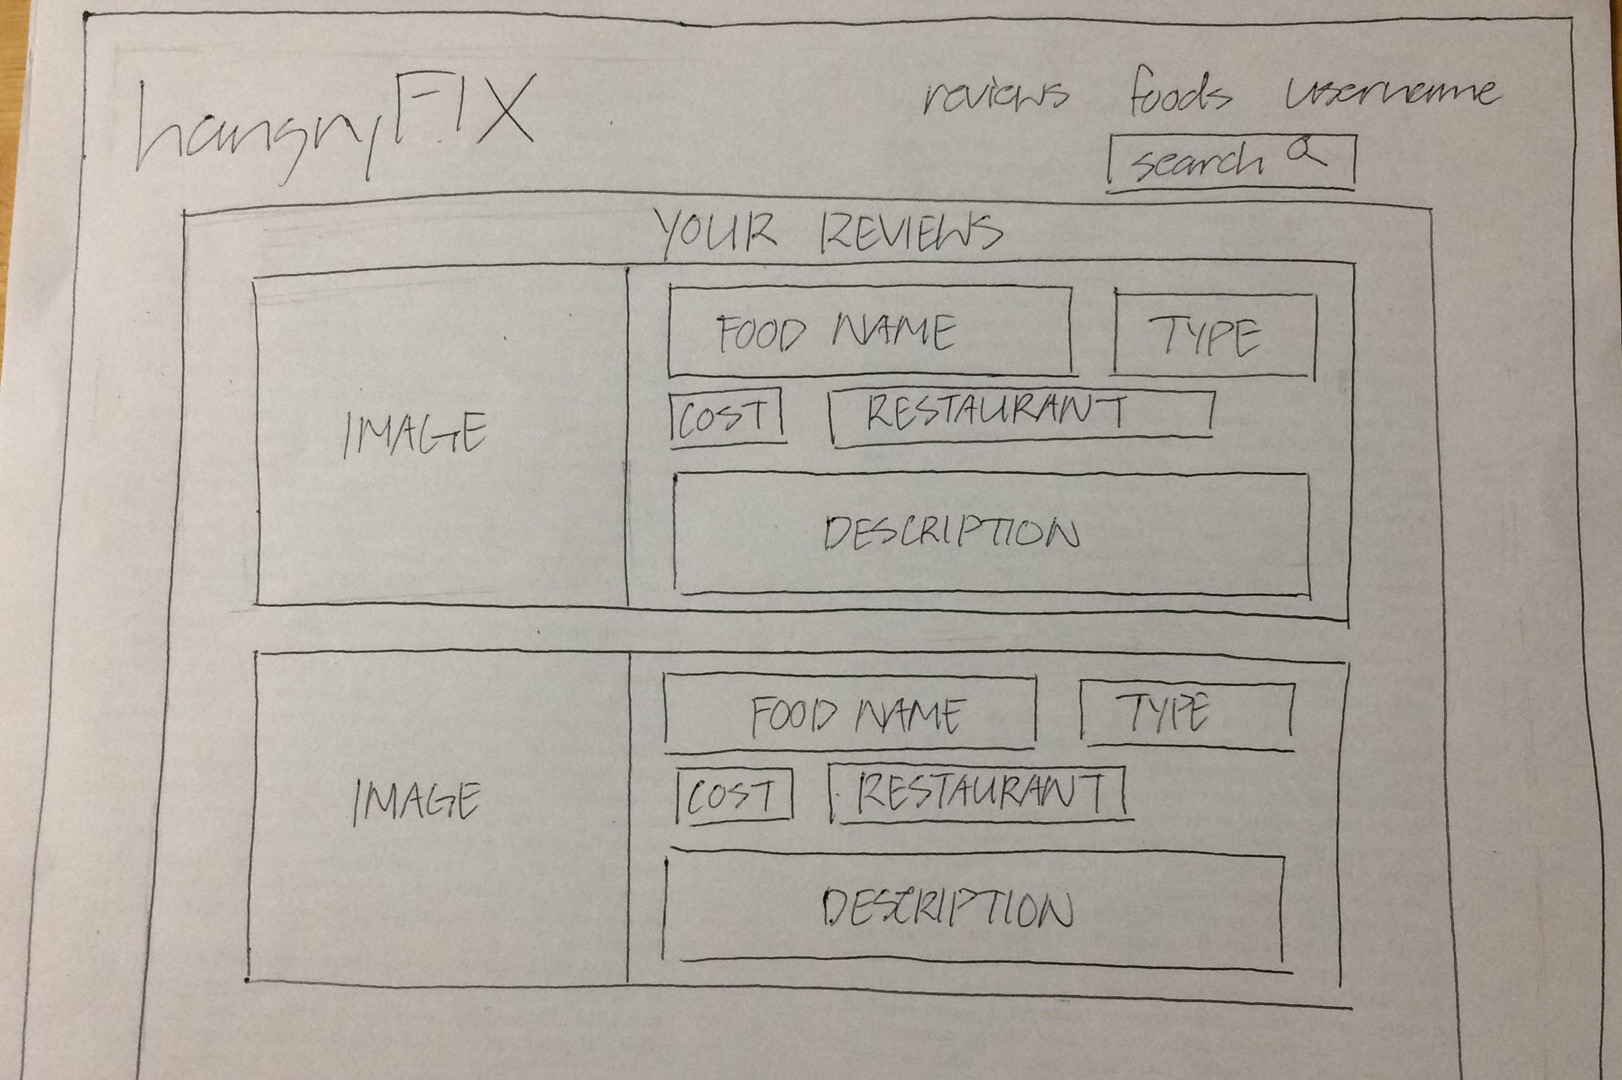 hangryFIX
reviews foods username
search
YOUR REVIEWS
FOOD NAME TYPE
COST RESTAURANT
IMAGE
DESCRIPTION
FOOD NAME TYPE
COST RESTAURANT
IMAGE
DESCRIPTION